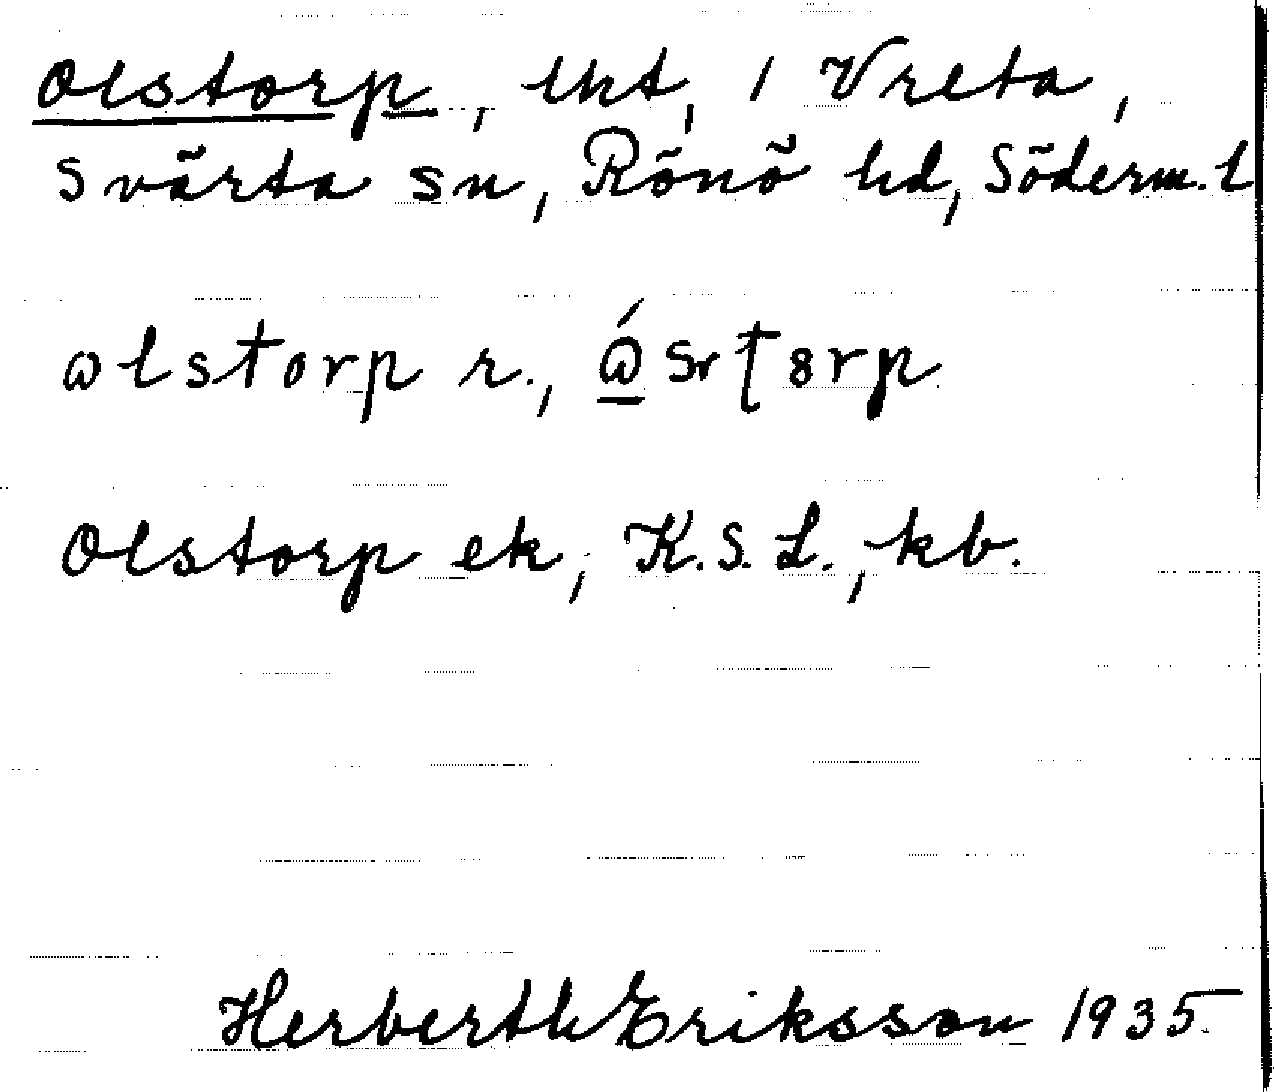 Olstorp, lht, i Vreta,
Svärta sn, Rönö hd, Söderm. l
olstorp r.,
Olstorp ek, K.S.L., kb.
Herberth Eriksson 1935